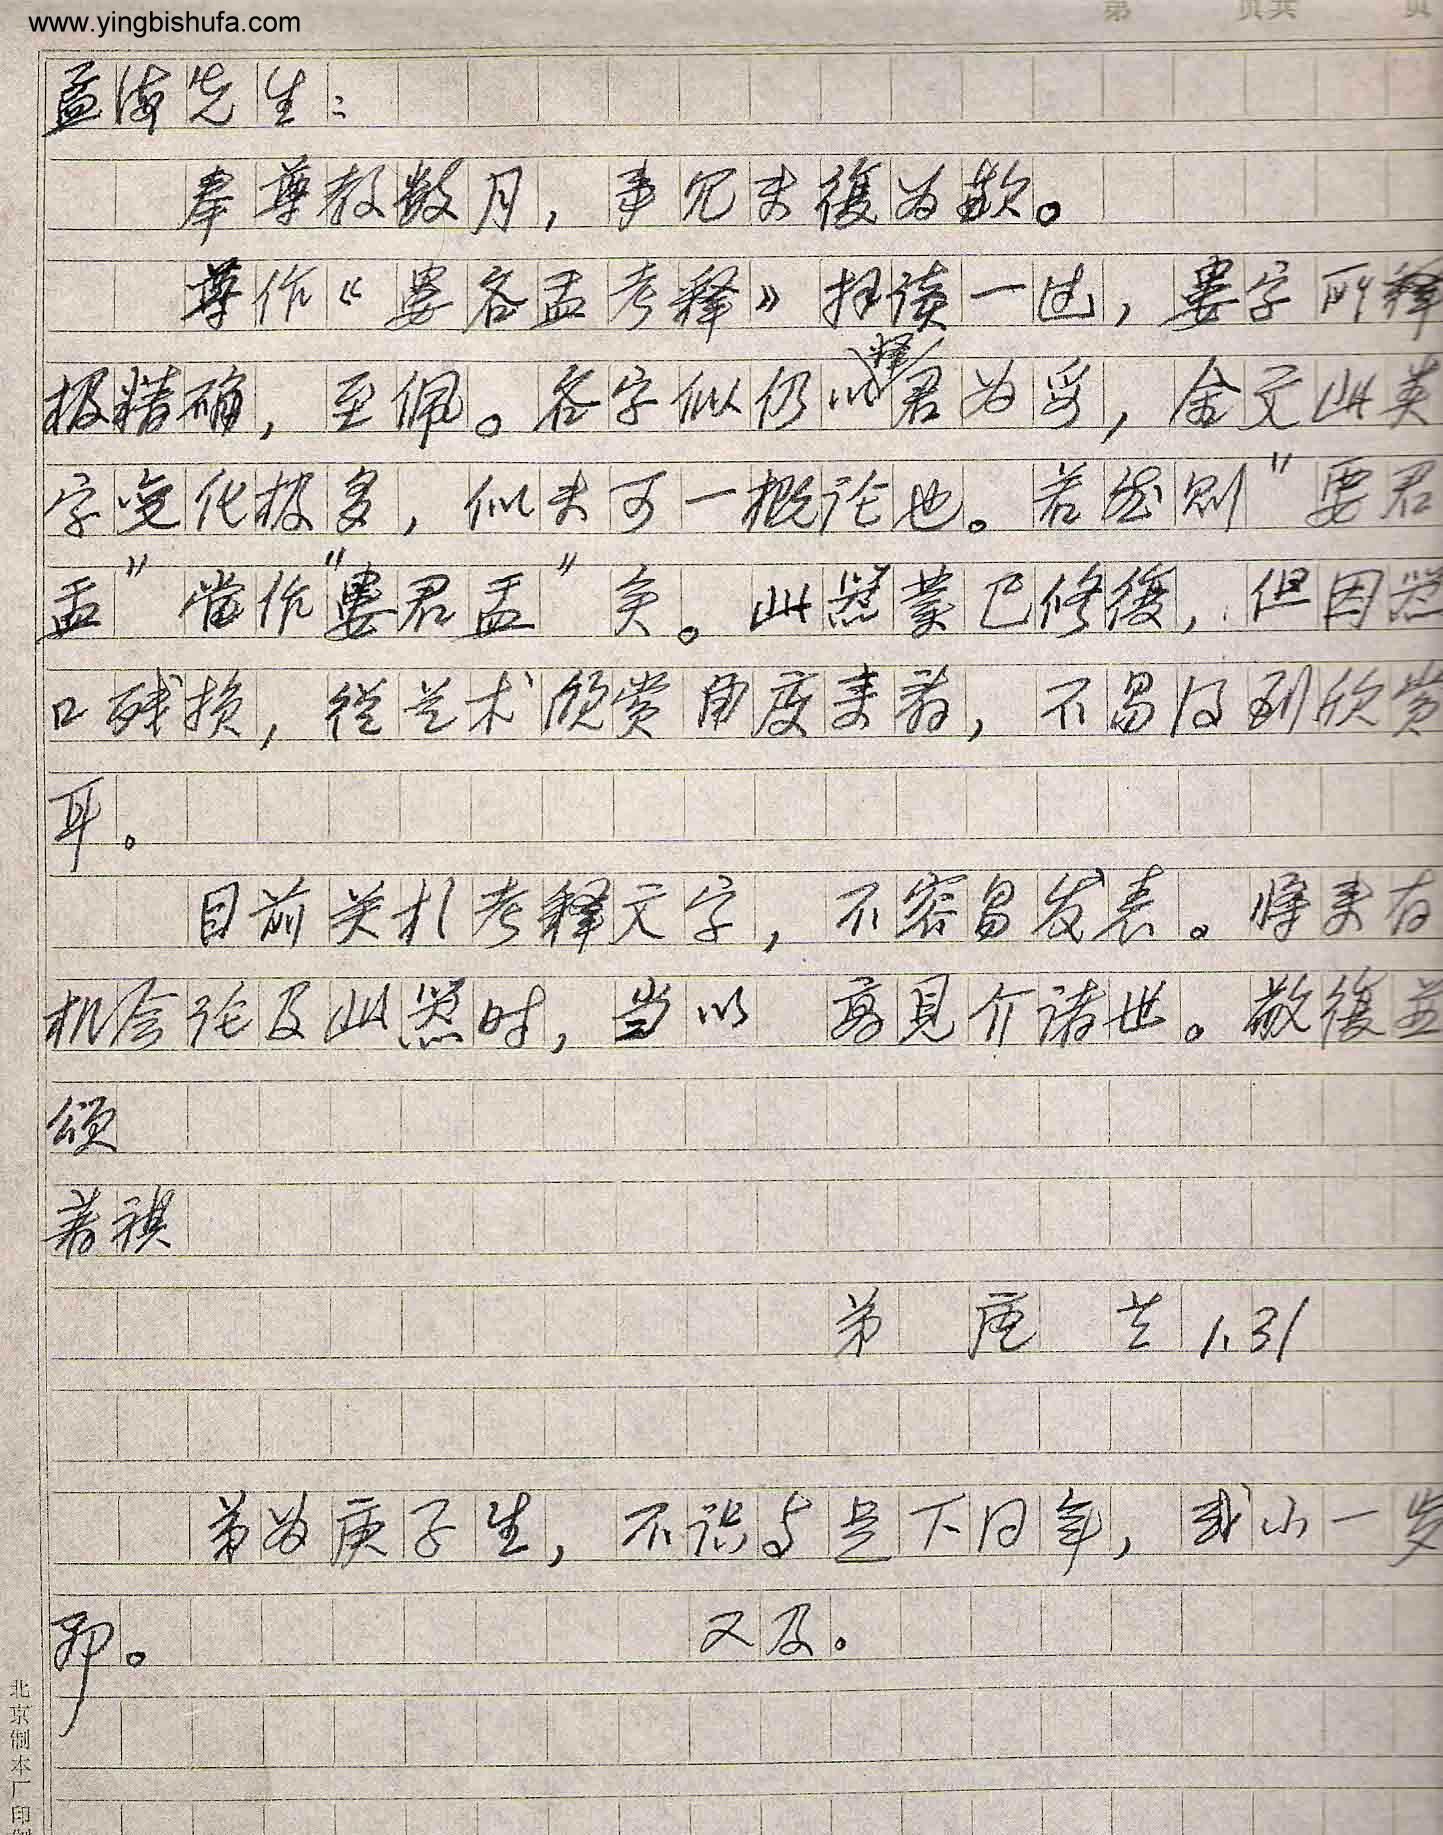 www.yingbishufa.com
第 页共 页
孟海先生：
奉尊教数月，事冗未復为歉。
尊作《婁各盂考释》拜读一过，婁字所释
极精确，至佩。各字似仍以释君为妥，金文此类
字变化极多，似未可一概论也。若然则“要君
盂”当作“婁君盂”矣。此器業已修復，但因器
口残损，從艺术欣赏角度来看，不易得到欣赏
耳。
目前关於考释文字，不容易发表。将来有
机会论及此器时，当以 高見介诸世。敬復並
颂
著祺
弟 唐 兰 1.31
弟为庚子生，不识与足下同年，或小一岁
耶。 又及。
北京制本厂印制